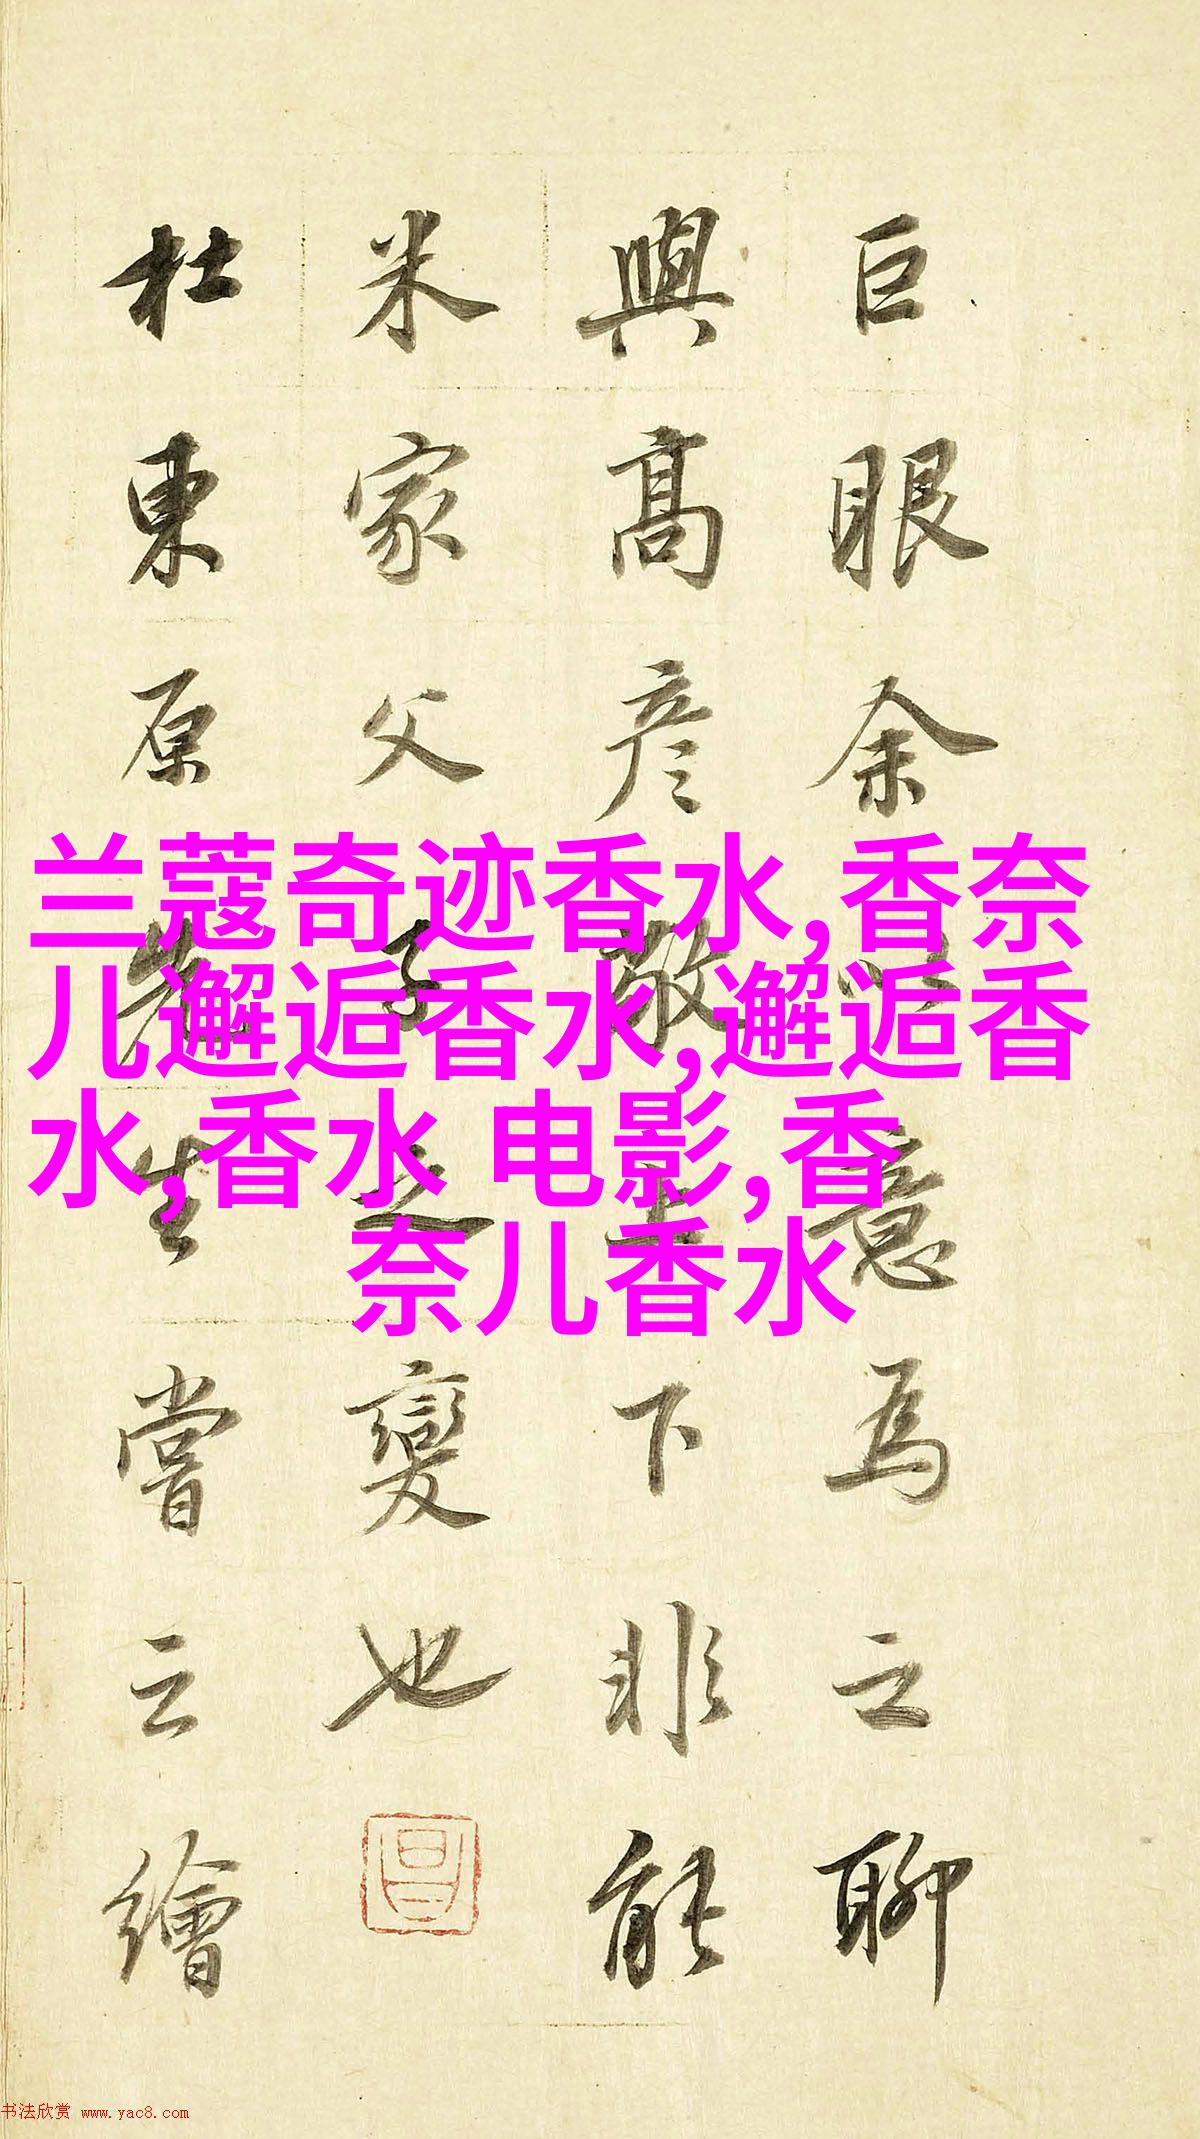 巨眼余以意爲之聊
與高彦敬上下非能
米家父子之變也
杜東原先生嘗云繪
兰蔻奇迹香水,香奈
儿邂逅香水,邂逅香
水,香水 电影,香
奈儿香水
书法欣赏 www.yac8.com